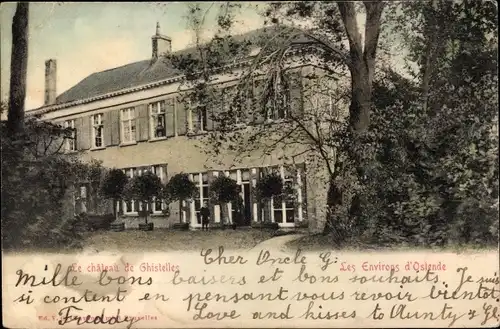 Le château de Ghistelles
Les Environs d'Ostende
Cher Oncle G:
Mille bons baisers et bons souhaits. Je suis
si content en pensant vous revoir bientôt
Freddy Love and kisses to Aunty & G